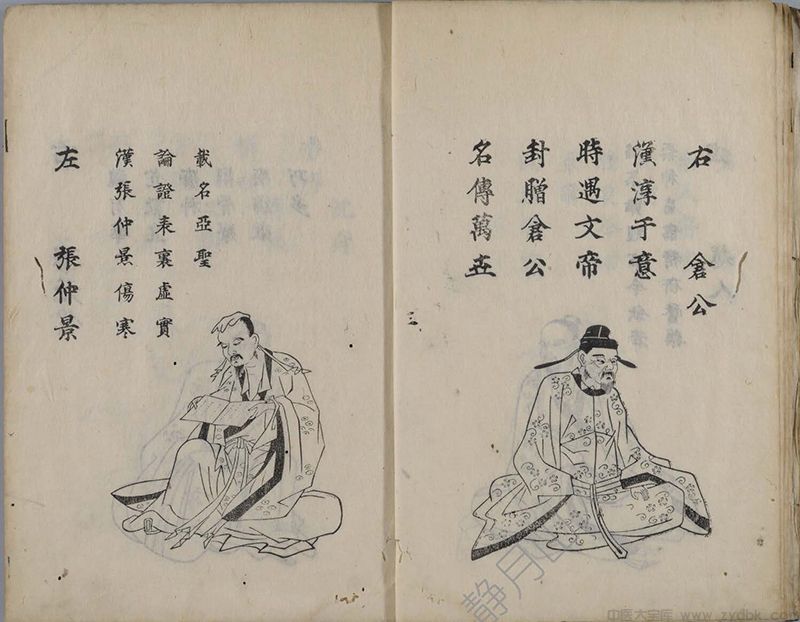 右 倉公
漢淳于意
時遇文帝
封贈倉公
名傳萬世
左 張仲景
漢張仲景傷寒
論證表裏虛實
載名亞聖
三
静月
中医大宝库 www.zydbk.com